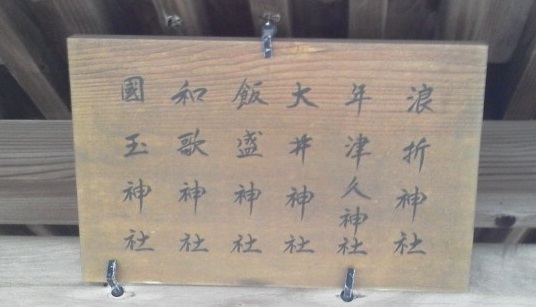 浪折神社
年津久神社
大井神社
飯盛神社
和歌神社
國玉神社